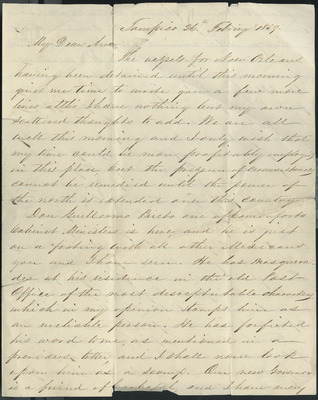 Tampico 26th Febry 1859.
My Dear Anna,
The vessels for New Orleans
having been detained until this morning
gives me time to write you a few more
lines altho I have nothing but my own
scattered thoughts to add. We are all
well this morning and I only wish that
my time could be more profitably employed
in this place but the present
cannot be remedied until the power of
the north is extended over this country
Don Guillermo Prieto one of Comonforts
Cabinet Ministers is here, and he is just
on a footing with all other Mexicans
you and I have seen. He has
at his residence in the old Post
Office of the most disreputable character
which in my opinion stamps him as
an unreliable person. He has forfeited
his word to me, as mentioned in a
previous letter, and I shall never look
upon him as a scamp. Our new Governor
is a friend of and I have every